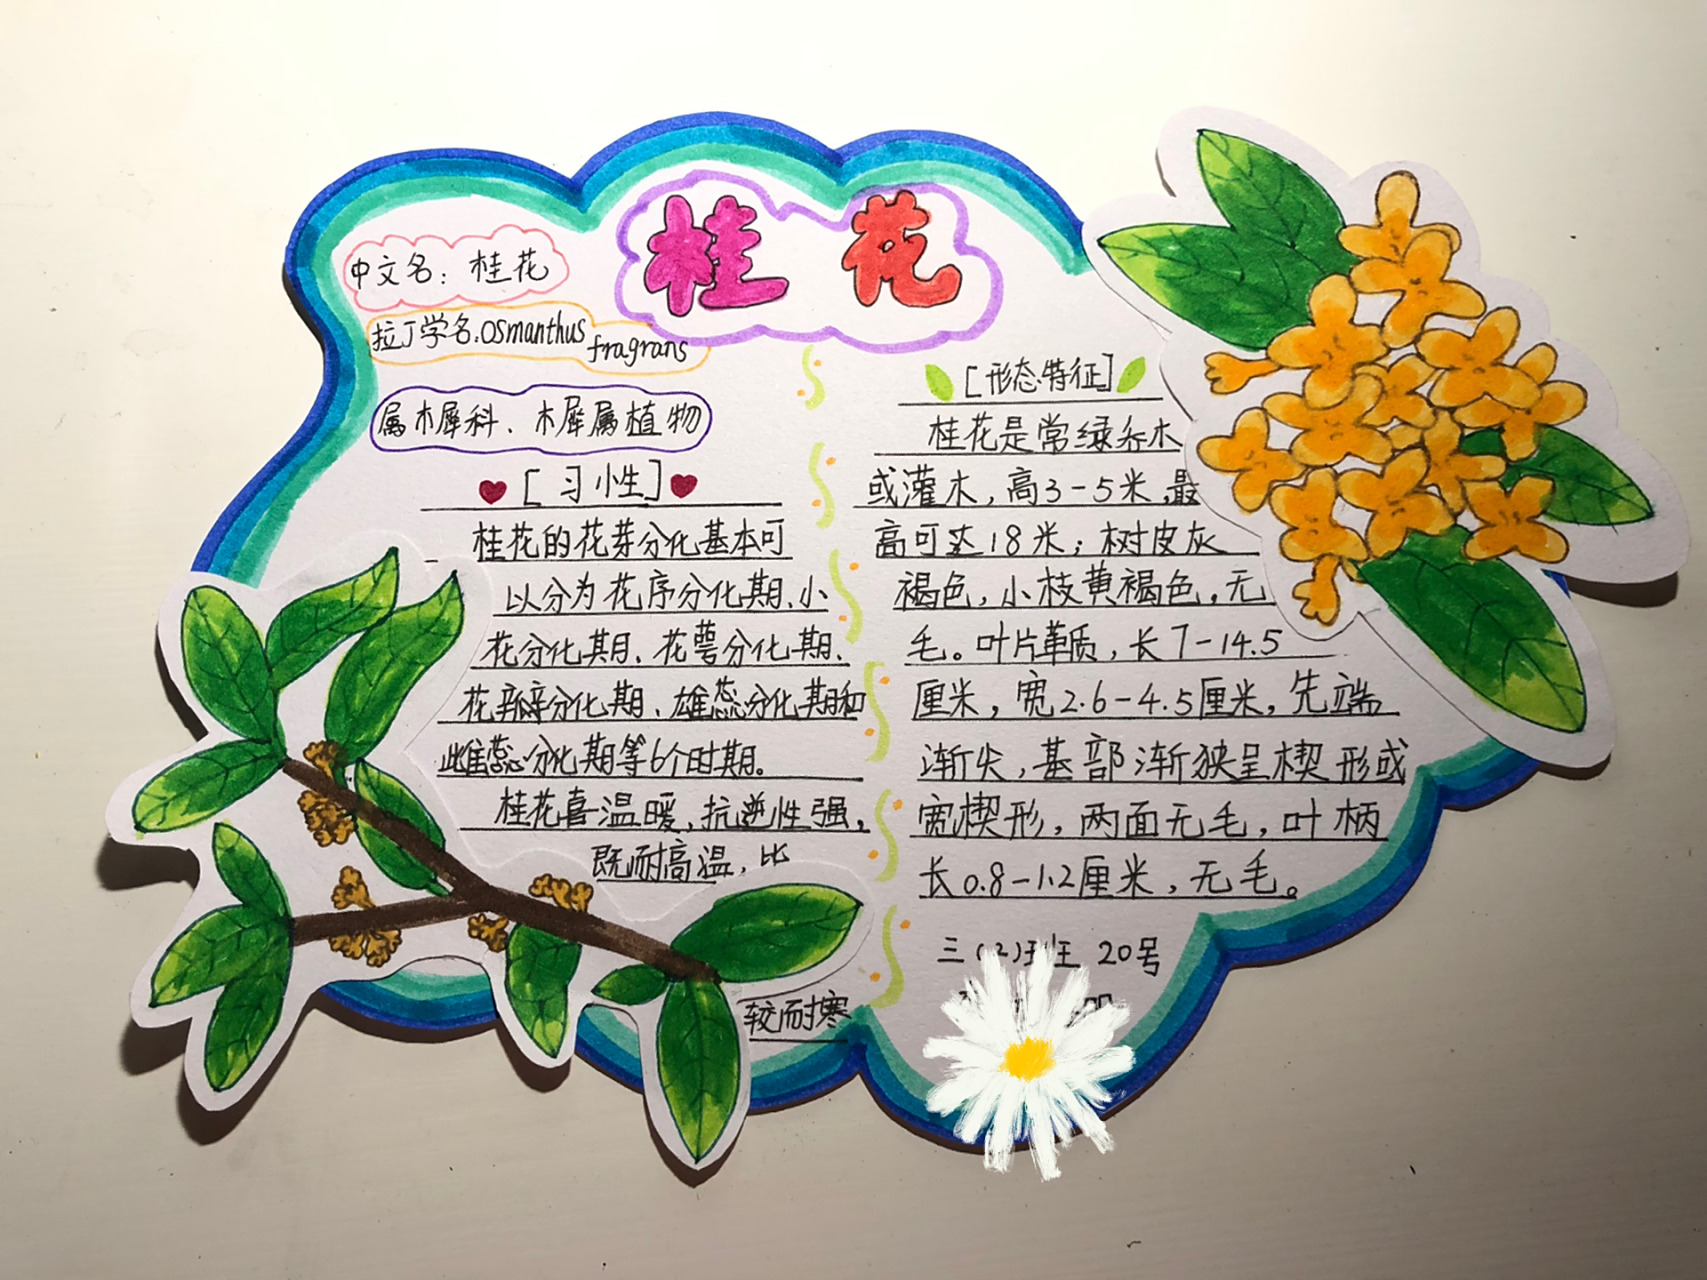 桂花
中文名：桂花
拉丁学名：Osmanthus
fragrans
属木犀科、木犀属植物
［习小生］
桂花的花芽分化基本可
以分为花序分化期、小
花分化期、花萼分化期、
花瓣分化期、雄蕊分化期和
雌蕊分化期等6个时期。
桂花喜温暖，抗逆性强，
既耐高温，比
较耐寒
［形态特征］
桂花是常绿乔木
或灌木，高3-5米，最
高可达18米；树皮灰
褐色，小枝黄褐色，无
毛。叶片革质，长7-14.5
厘米，宽2.6-4.5厘米，先端
渐尖，基部渐狭呈楔形或
宽楔形，两面无毛，叶柄
长0.8-1.2厘米，无毛。
三(2)班 20号